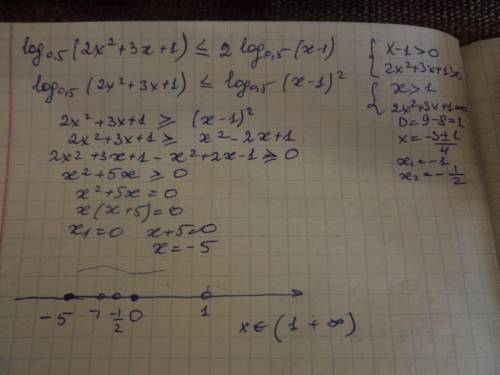 log₀,₅ (2x² + 3x + 1) ≤ 2 log₀,₅ (x-1)
log₀,₅ (2x² + 3x + 1) ≤ log₀,₅ (x-1)²
2x² + 3x + 1 ≥ (x-1)²
2x² + 3x + 1 ≥ x² - 2x + 1
2x² + 3x + 1 - x² + 2x - 1 ≥ 0
x² + 5x ≥ 0
x² + 5x = 0
x (x + 5) = 0
x₁ = 0 x + 5 = 0
x = -5
{ x - 1 > 0
2x² + 3x + 1 > 0
{ x > 1
2x² + 3x + 1 = 0
D = 9 - 8 = 1
x = (-3 ± 1)/4
x₁ = -1
x₂ = -1/2
-5 -1 -1/2 0 1
x ∈ (1 + ∞)